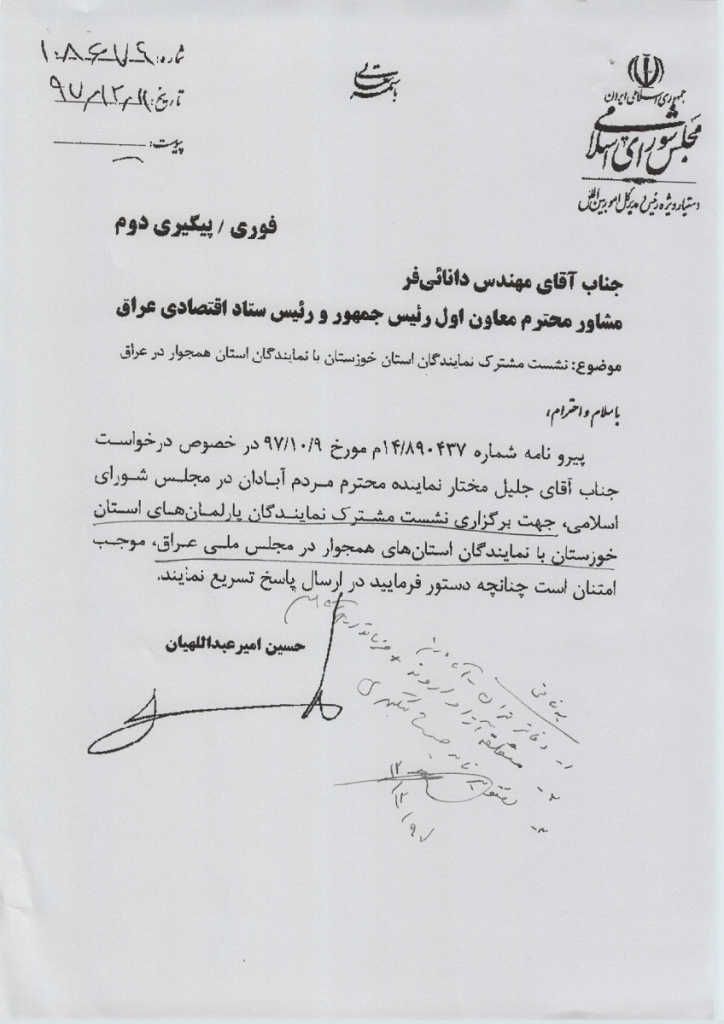 جمهوری اسلامی ایران
مجلس شورای اسلامی
دستیار ویژه رئیس و مدیرکل امور بین‌الملل
باسمه تعالی
شماره:
تاریخ:
پیوست:
فوری / پیگیری دوم
جناب آقای مهندس دانائی‌فر
مشاور محترم معاون اول رئیس جمهور و رئیس ستاد اقتصادی عراق
موضوع: نشست مشترک نمایندگان استان خوزستان با نمایندگان استان همجوار در عراق
با سلام و احترام،
پیرو نامه شماره ۱۴/۸۹۰۴۳۷م مورخ ۹۷/۱۰/۹ در خصوص درخواست
جناب آقای جلیل مختار نماینده محترم مردم آبادان در مجلس شورای
اسلامی، جهت برگزاری نشست مشترک نمایندگان پارلمان‌های استان
خوزستان با نمایندگان استان‌های همجوار در مجلس ملی عراق، موجب
امتنان است چنانچه دستور فرمایید در ارسال پاسخ تسریع نمایند.
حسین امیرعبداللهیان